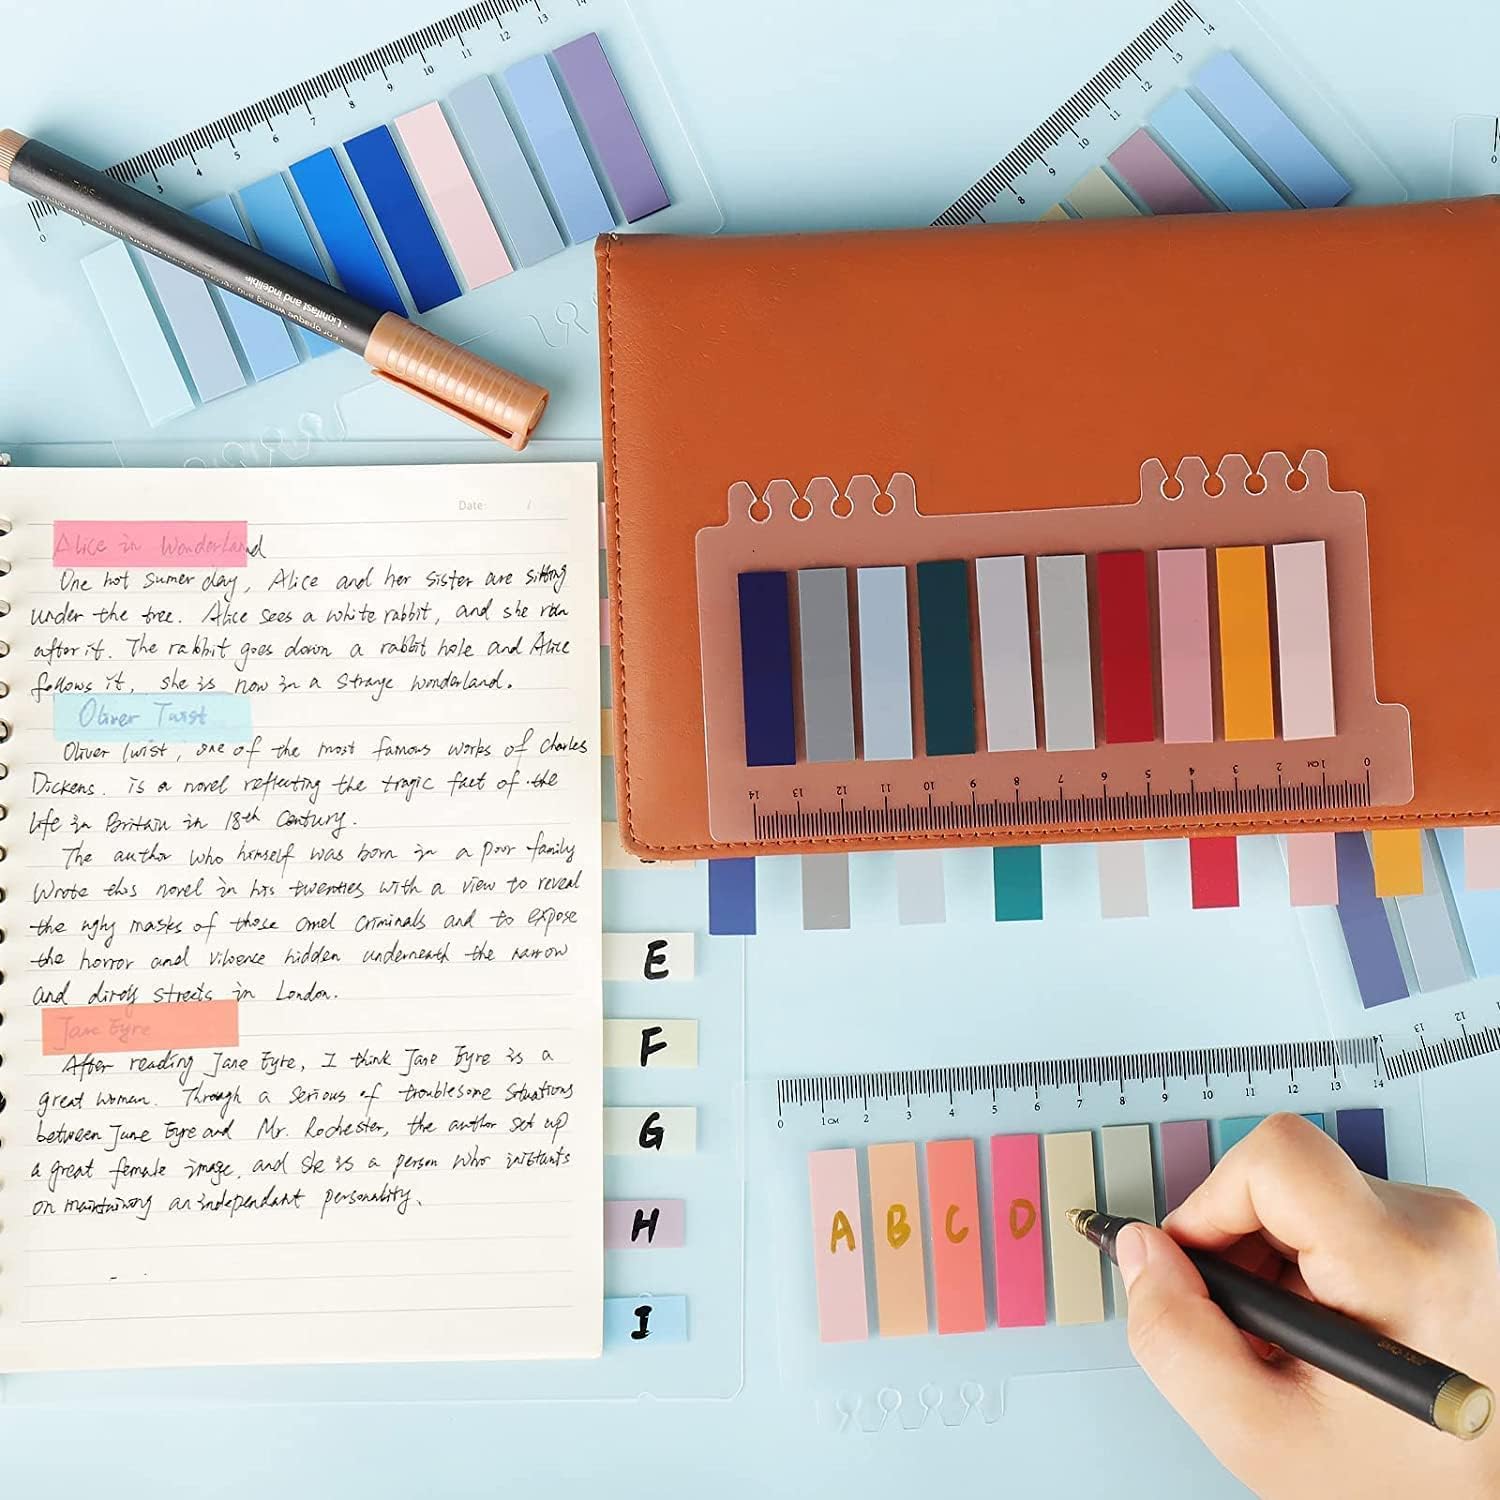 0 3 4 5 6 7 8 9 10 11 12 13 14
8 9 10 11 12 13 14
• For opaque writing and decorating
• Lightfast and indelible
Date: /
Alice in Wonderland
One hot sumer day, Alice and her sister are sitting
under the tree. Alice sees a white rabbit, and she run
after it. The rabbit goes down a rabbit hole and Alice
follows it, she is now in a strange wonderland.
Oliver Twist
Oliver Twist, one of the most famous works of Charles
Dickens. is a novel reflecting the tragic fact of the
life in Britain in 18th Century.
The author who himself was born in a poor family
wrote this novel in his twenties with a view to reveal
the ugly masks of those cruel criminals and to expose
the horror and violence hidden underneath the narrow
and dirty streets in London.
Jane Eyre
After reading Jane Eyre, I think Jane Eyre is a
great woman. Through a serious of troublesome situations
between Jane Eyre and Mr. Rochester, the author set up
a great female image, and she is a person who
on maintaining an independant personality.
E
F
G
H
I
14 13 12 11 10 9 8 7 6 5 4 3 2 1CM 0
0 1CM 2 3 4 5 6 7 8 9 10 11 12 13 14
14 13 12
A B C D